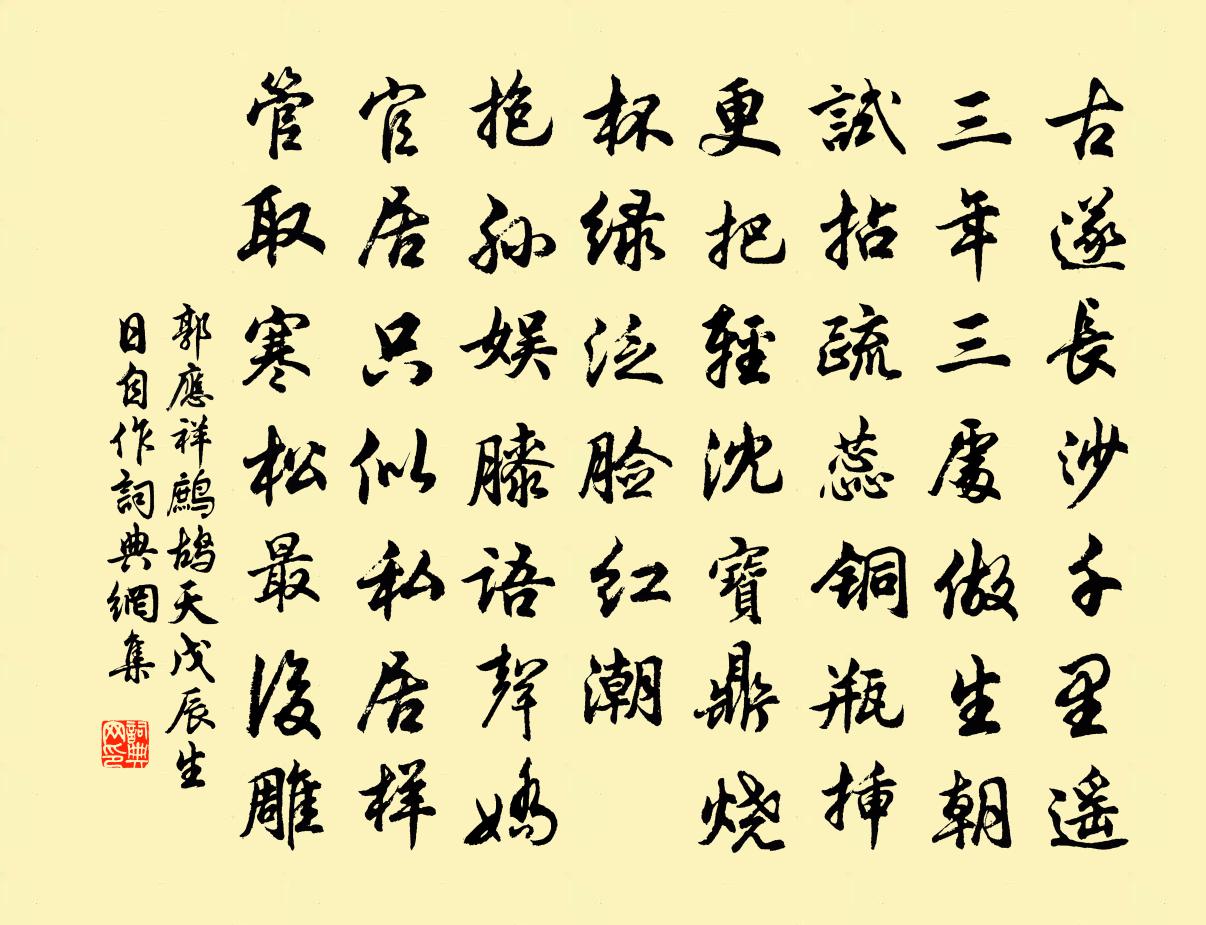 古遂長沙千里遥
三年三處做生朝
試拈疏蕊銅瓶揷
更把輕沈寶鼎烧
杯绿泛脸红潮
抱孙娱膝語聲嬌
官居只似私居样
管取寒松最後雕
郭應祥鷓鴣天戊辰生
日自作詞典網集
詞典网印